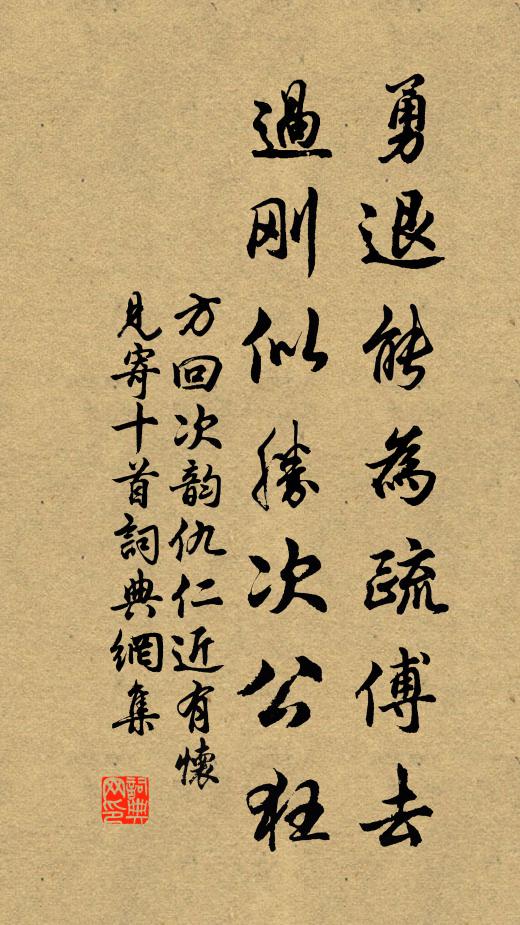 勇退能為疏傅去
過刚似勝次公狂
方回次韵仇仁近有懷
見寄十首詞典網集
詞典
网印